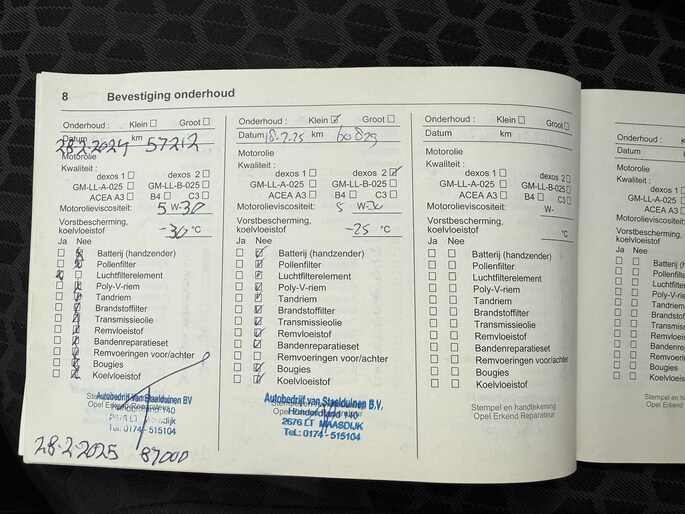 8 Bevestiging onderhoud
Onderhoud : Klein Groot
Datum 28-2-2024 km 57212
Motorolie
Kwaliteit :
dexos 1 dexos 2
GM-LL-A-025 GM-LL-B-025
ACEA A3 B4 C3
Motorolieviscositeit: 5 W-30
Vorstbescherming,
koelvloeistof -30 °C
Ja Nee
Batterij (handzender)
Pollenfilter
Luchtfilterelement
Poly-V-riem
Tandriem
Brandstoffilter
Transmissieolie
Remvloeistof
Bandenreparatieset
Remvoeringen voor/achter
Bougies
Koelvloeistof
Autobedrijf van Staalduinen BV
Opel Erkend Reparateur
Tel: 0174-515104
28-2-2025 87000
Onderhoud : Klein Groot
Datum 18-2-25 km 60829
Motorolie
Kwaliteit :
dexos 1 dexos 2
GM-LL-A-025 GM-LL-B-025
ACEA A3 B4 C3
Motorolieviscositeit: 5 W-30
Vorstbescherming,
koelvloeistof -25 °C
Ja Nee
Batterij (handzender)
Pollenfilter
Luchtfilterelement
Poly-V-riem
Tandriem
Brandstoffilter
Transmissieolie
Remvloeistof
Bandenreparatieset
Remvoeringen voor/achter
Bougies
Koelvloeistof
Autobedrijf van Staalduinen B.V.
2676 LT MAASDIJK
Tel.: 0174 - 515104
Onderhoud : Klein Groot
Datum km
Motorolie
Kwaliteit :
dexos 1 dexos 2
GM-LL-A-025 GM-LL-B-025
ACEA A3 B4 C3
Motorolieviscositeit: W-
Vorstbescherming,
koelvloeistof °C
Ja Nee
Batterij (handzender)
Pollenfilter
Luchtfilterelement
Poly-V-riem
Tandriem
Brandstoffilter
Transmissieolie
Remvloeistof
Bandenreparatieset
Remvoeringen voor/achter
Bougies
Koelvloeistof
Stempel en handtekening
Opel Erkend Reparateur
Onderhoud :
Datum
Motorolie
Kwaliteit :
dexos 1
GM-LL-A-025
ACEA A3
Motorolieviscositeit:
Vorstbescherming,
koelvloeistof
Ja Nee
Batterij
Pollenfilter